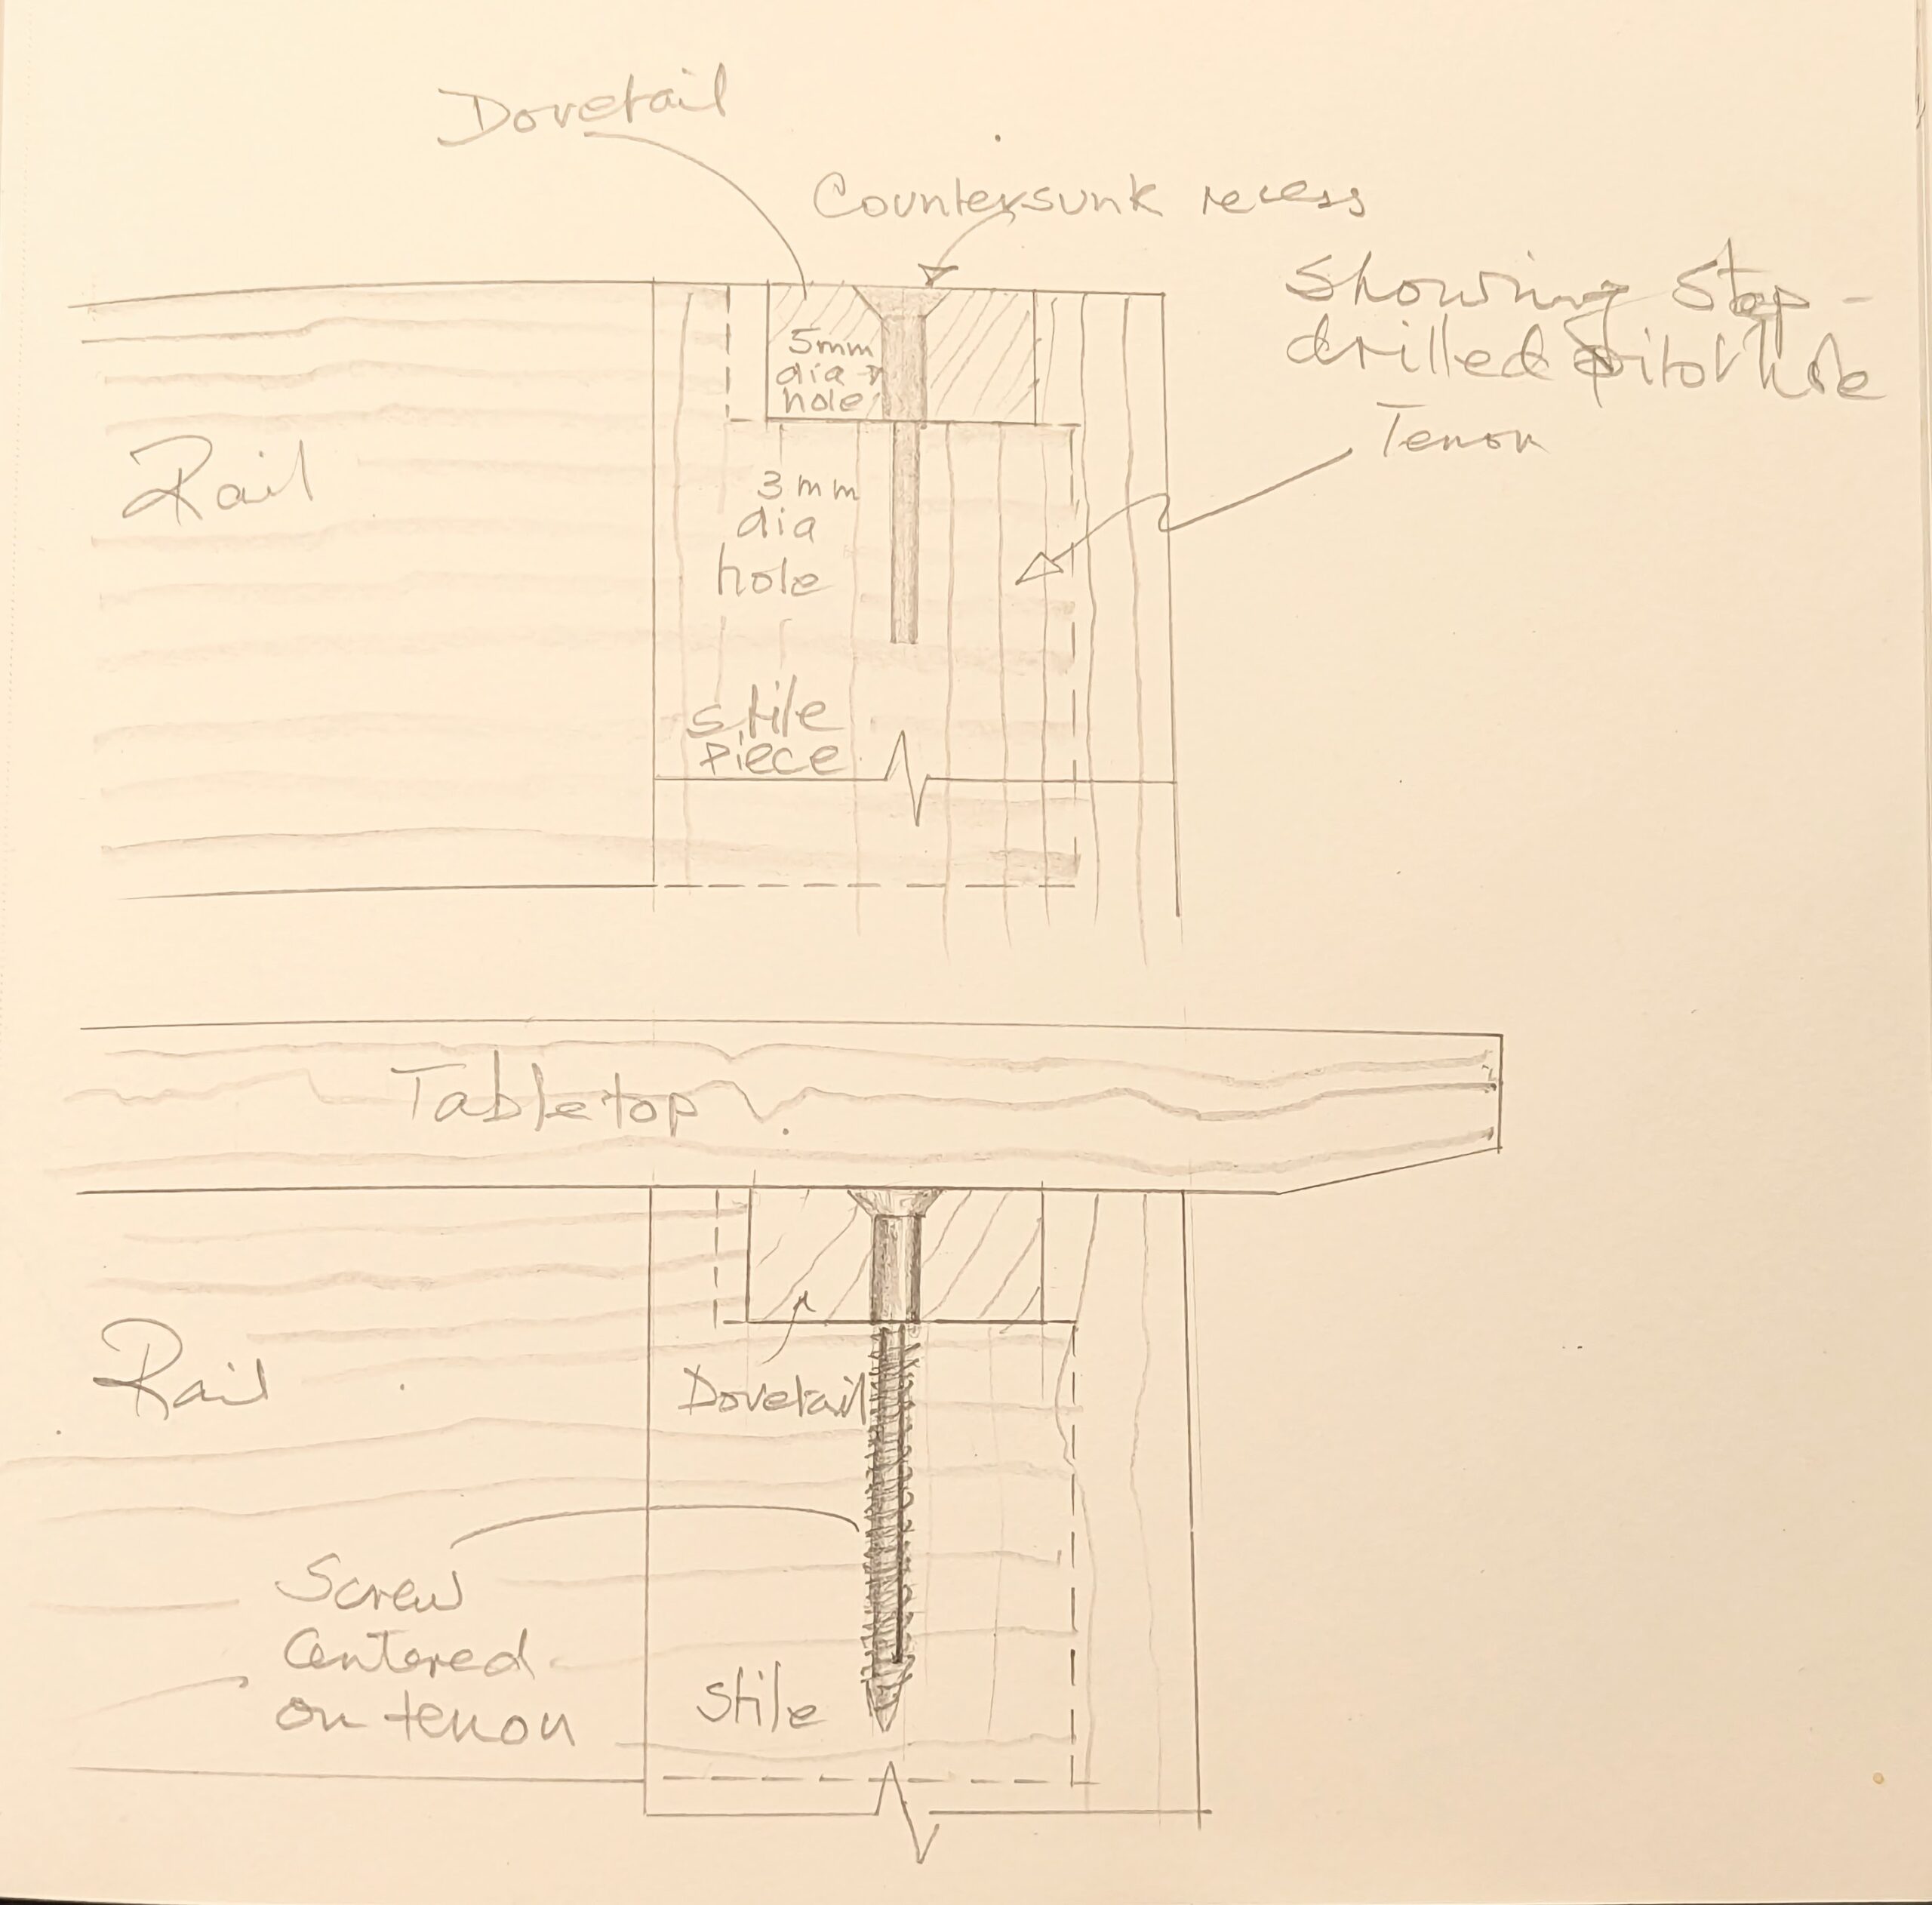 Dovetail
Countersunk recess
Showing Step-
drilled pilot hole
Tenon
5mm
dia
hole
Rail
3mm
dia
hole
stile
piece
Tabletop
Rail
Dovetail
Screw
centered
on tenon
stile